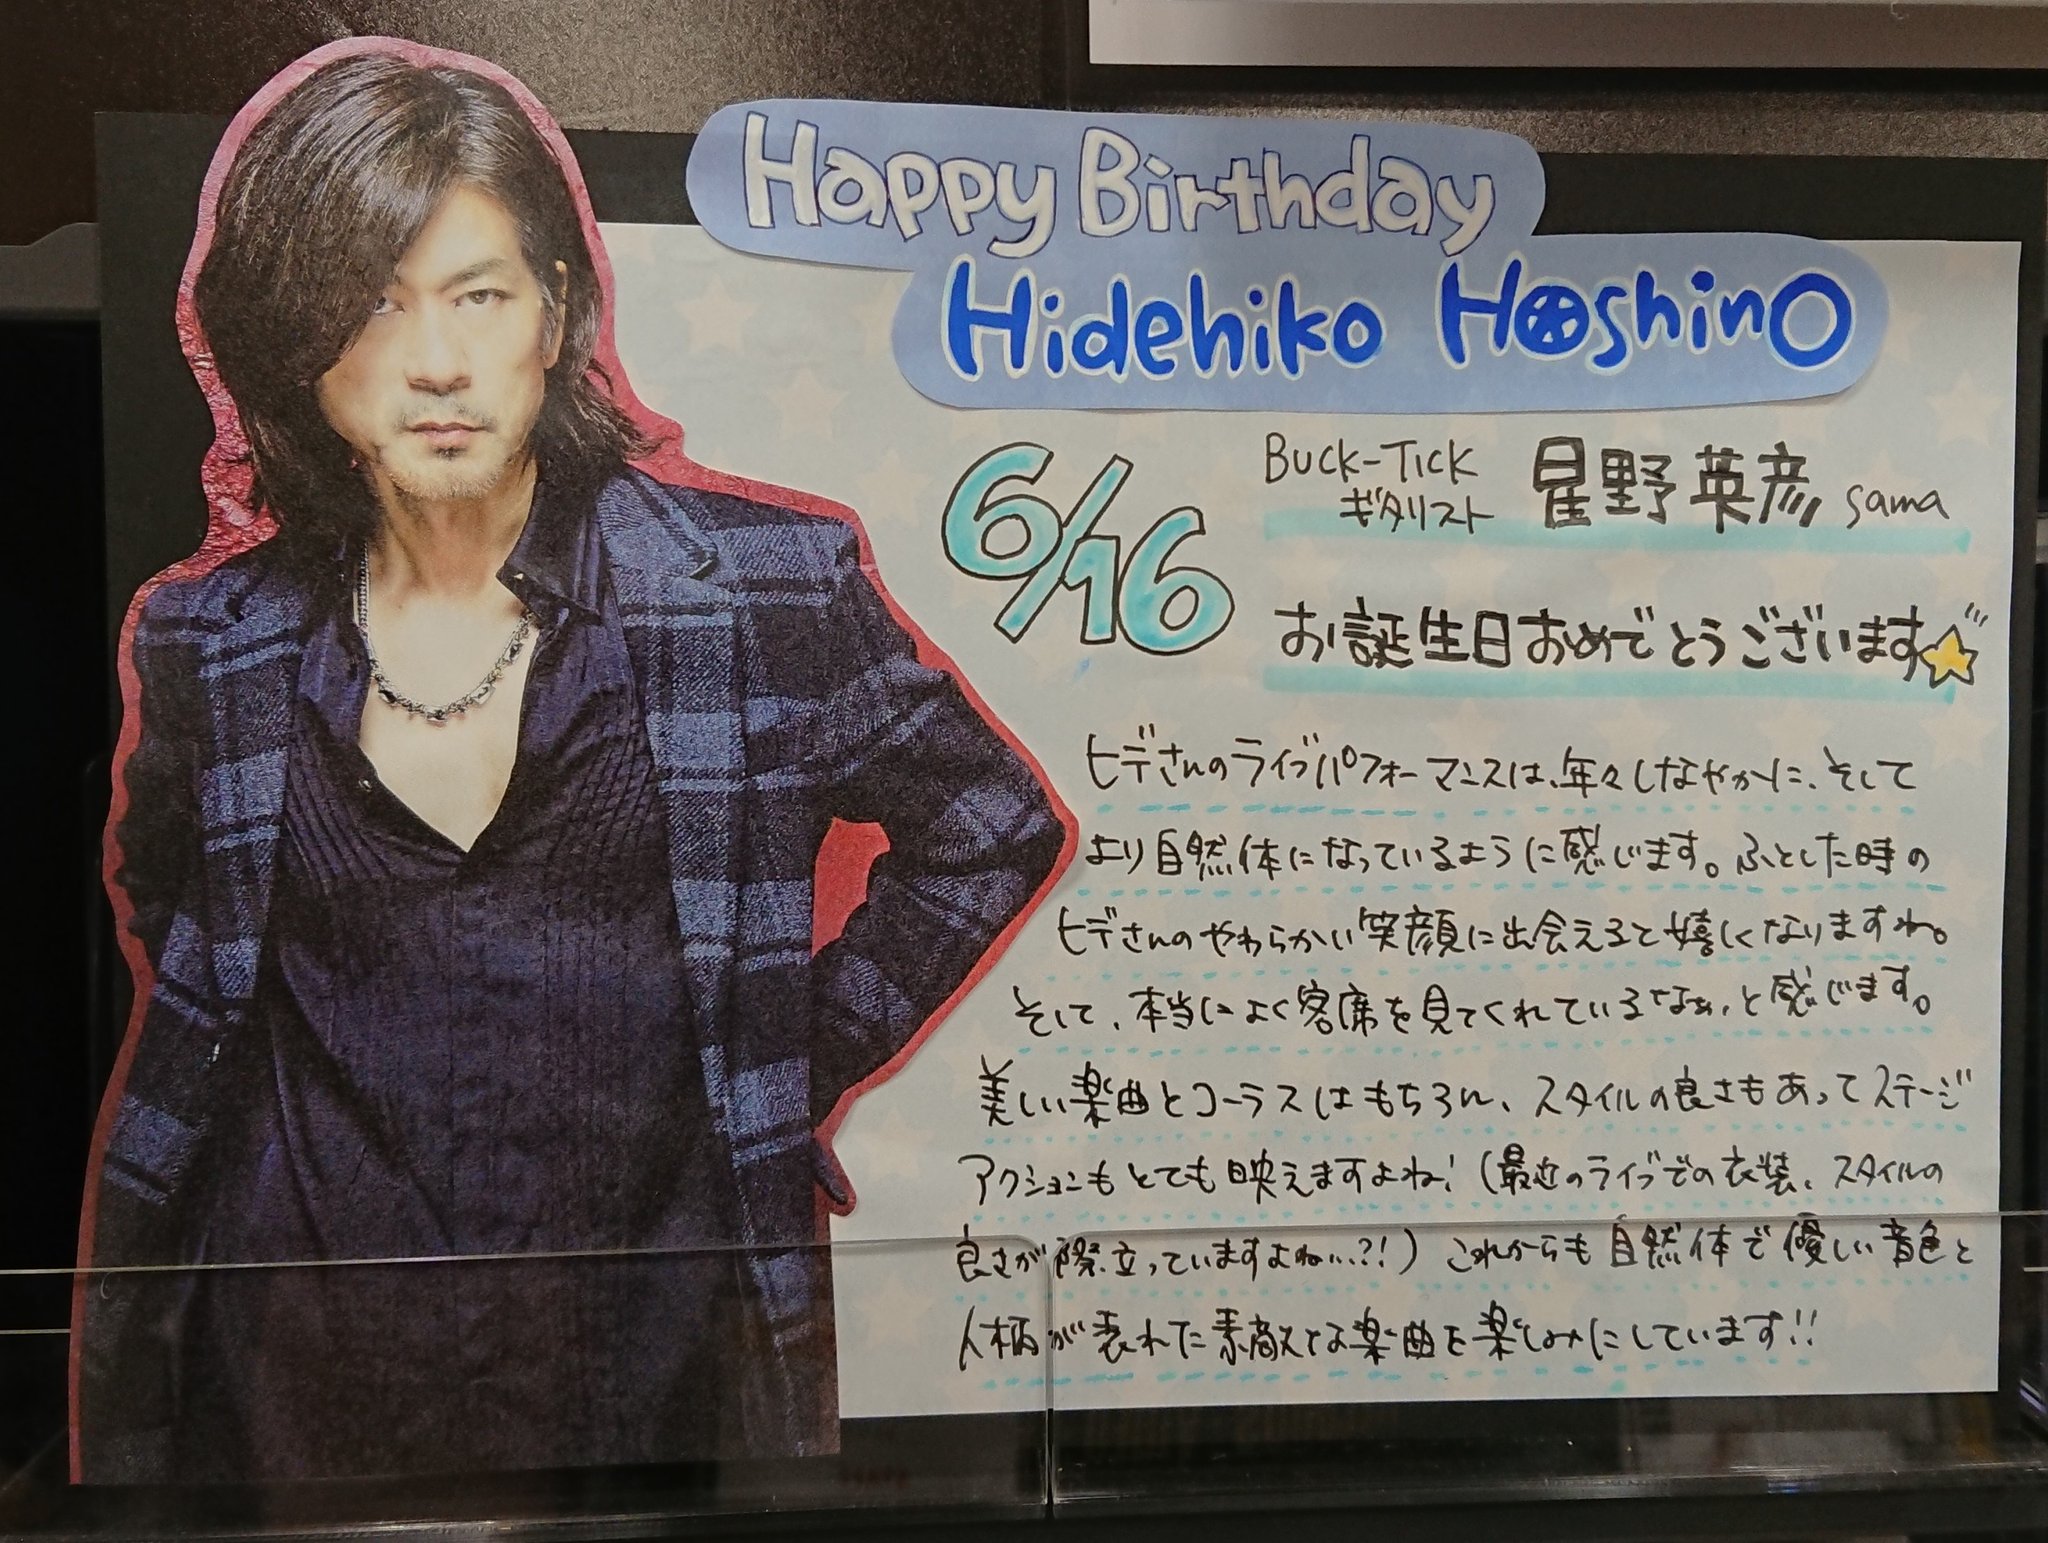 Happy Birthday
Hidehiko Hoshino
6/16
BUCK-TICK
ギタリスト
星野英彦 sama
お誕生日おめでとうございます
ヒデさんのライブパフォーマンスは、年々しなやかに、そして
より自然体になっているように感じます。ふとした時の
ヒデさんのやわらかい笑顔に出会えると嬉しくなりますね。
そして、本当によく客席を見てくれているなぁ、と感じます。
美しい楽曲とコーラスはもちろん、スタイルの良さもあってステージ
アクションもとても映えますよね!(最近のライブでの衣装、スタイルの
良さが際立っていますよね…?!)これからも自然体で優しい音色と
人柄が表れた素敵な楽曲を楽しみにしています!!